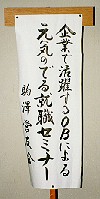 企業で活躍するOBによる
元気のでる就職セミナー
駒澤会